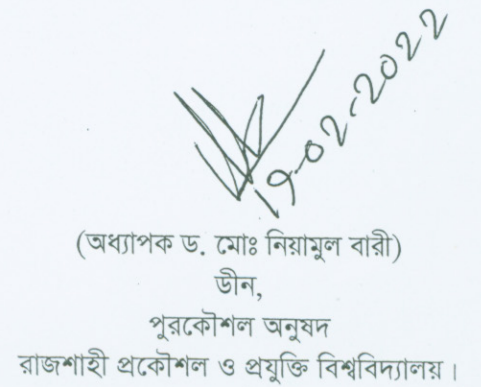 ১৭-০২-২০২২
(অধ্যাপক ড. মোঃ নিয়ামুল বারী)
ডীন,
পুরকৌশল অনুষদ
রাজশাহী প্রকৌশল ও প্রযুক্তি বিশ্ববিদ্যালয়।